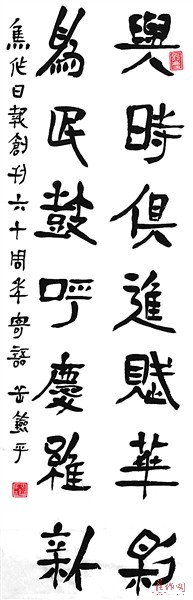 與時俱進賦華彩
為民鼓呼慶維新
焦作日報創刊六十周年寄語 岳燕平